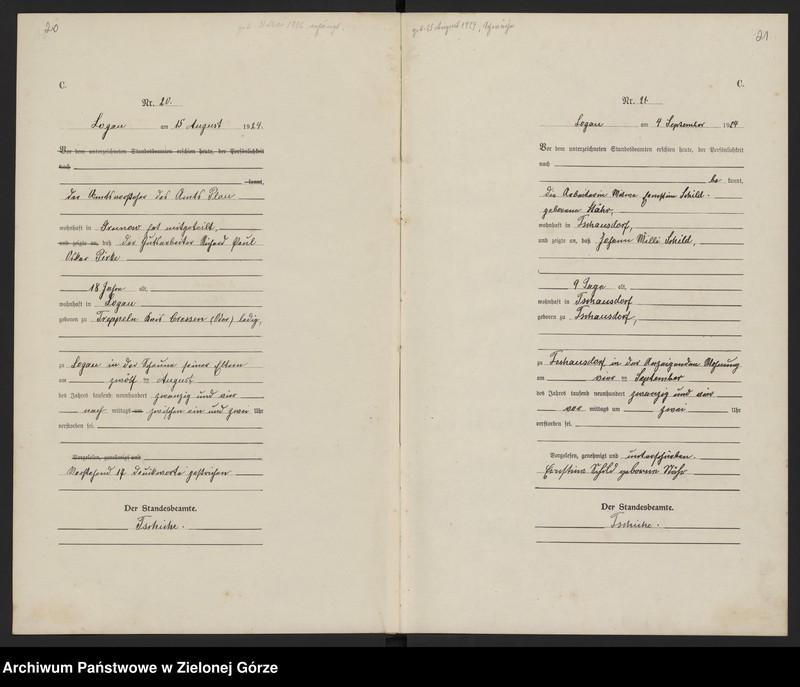 20
C.
Nr. 20.
Logau am 15 August 1924.
Vor dem unterzeichneten Standesbeamten erschien heute, der Persönlichkeit
nach
kannt,
der Amtsvorsteher des Amts Plau
wohnhaft in Grunow hat mitgeteilt,
und zeigte an, daß der Gutsarbeiter Richard Paul
Oskar Pirke
18 Jahre alt,
wohnhaft in Logau
geboren zu Treppeln Kreis Crossen (Oder) ledig,
zu Logau in der Scheune seiner Eltern
am zwölf ten August
des Jahres tausend neunhundert zwanzig und vier
nach mittags zwischen ein und zwei Uhr
verstorben sei.
Vorgelesen, genehmigt und
Vorstehend 17 Druckworte gestrichen
Der Standesbeamte.
21
C.
Nr. 21.
Logau am 4 September 1924
Vor dem unterzeichneten Standesbeamten erschien heute, der Persönlichkeit
nach
be kannt,
die Arbeiterin Witwe Ernstine Schild
geborene Stähr,
wohnhaft in Tschausdorf,
und zeigte an, daß Johann Willi Schild,
9 Tage alt,
wohnhaft in Tschausdorf
geboren zu Tschausdorf,
zu Tschausdorf in der Anzeigenden Wohnung
am vier ten September
des Jahres tausend neunhundert zwanzig und vier
vor mittags um zwei Uhr
verstorben sei.
Vorgelesen, genehmigt und unterschrieben.
Ernstine Schild geborene Stähr
Der Standesbeamte.
Archiwum Państwowe w Zielonej Górze